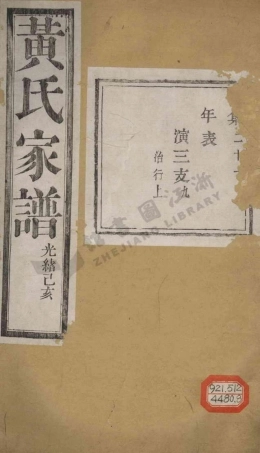 黃氏家譜
光緒己亥
年表
演三支九
治行上
浙江圖書館
ZHEJIANG LIBRARY
921.512
4480.3